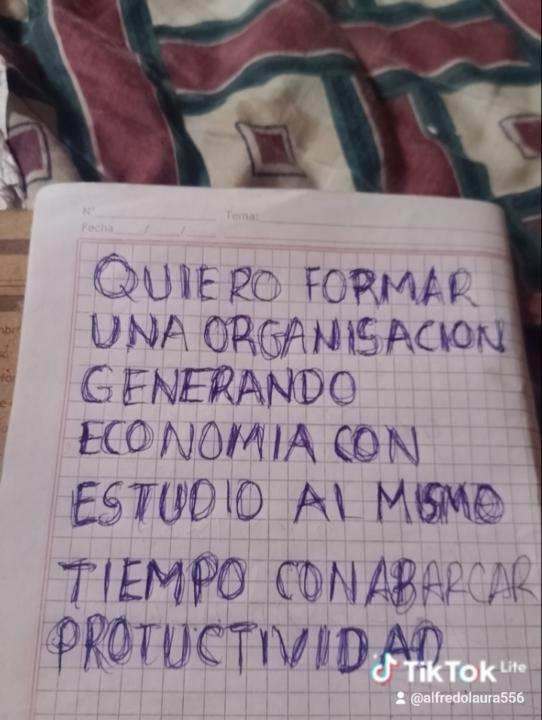 N° Tema:
Fecha / /
QUIERO FORMAR
UNA ORGANISACION
GENERANDO
ECONOMIA CON
ESTUDIO AL MISMO
TIEMPO CON ABARCAR
PROTUCTIVIDAD
TikTok Lite
@alfredolaura556